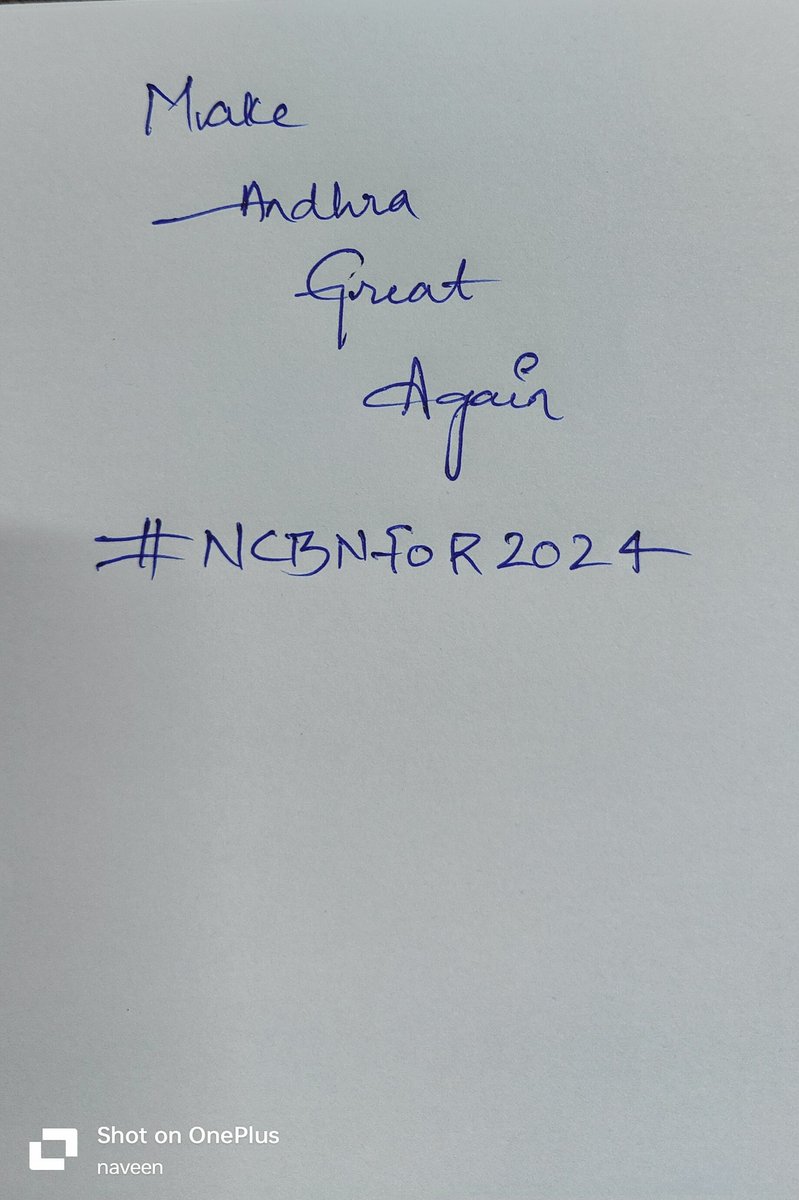 Make
Andhra
Great
Again
#NCBNFoR2024
Shot on OnePlus
naveen